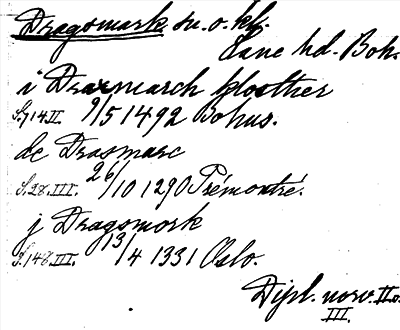 Dragsmark sn. o. kl.
Lane hd. Boh.
i Draxmarch kloster
S. 714 II. 9/5 1492 Bohus.
de Drasmarc
S. 28. III. 26/10 1290 Prémontré.
j Dragsmork
S. 148. III. 13/4 1331 Oslo.
Dipl. norv. II o.
III.